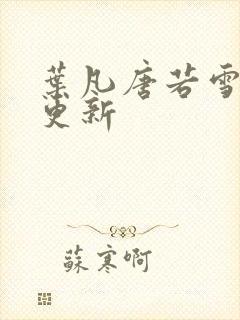 葉凡唐若雪
更新
蘇寒啊